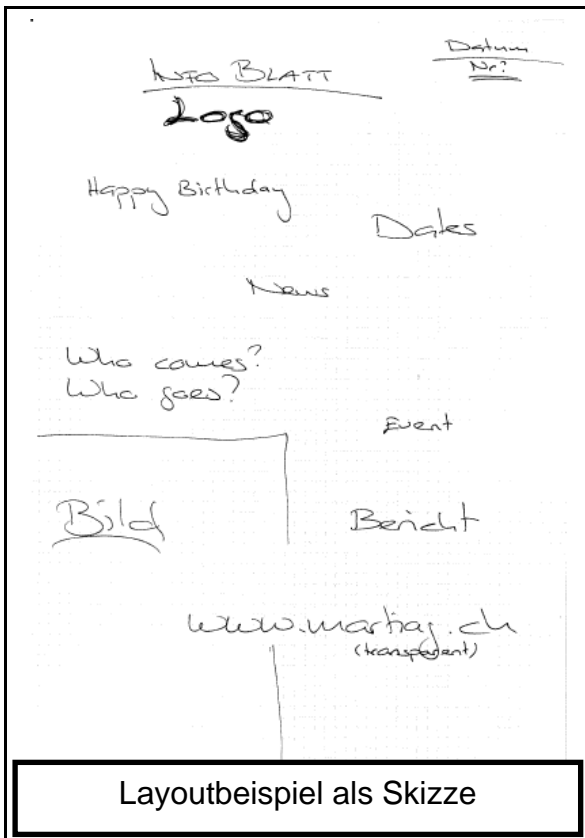 Datum
Nr?
INFO BLATT
Logo
Happy Birthday
Dates
News
Who comes?
Who goes?
Event
Bild
Bericht
www.martiag.ch
(transparent)
Layoutbeispiel als Skizze